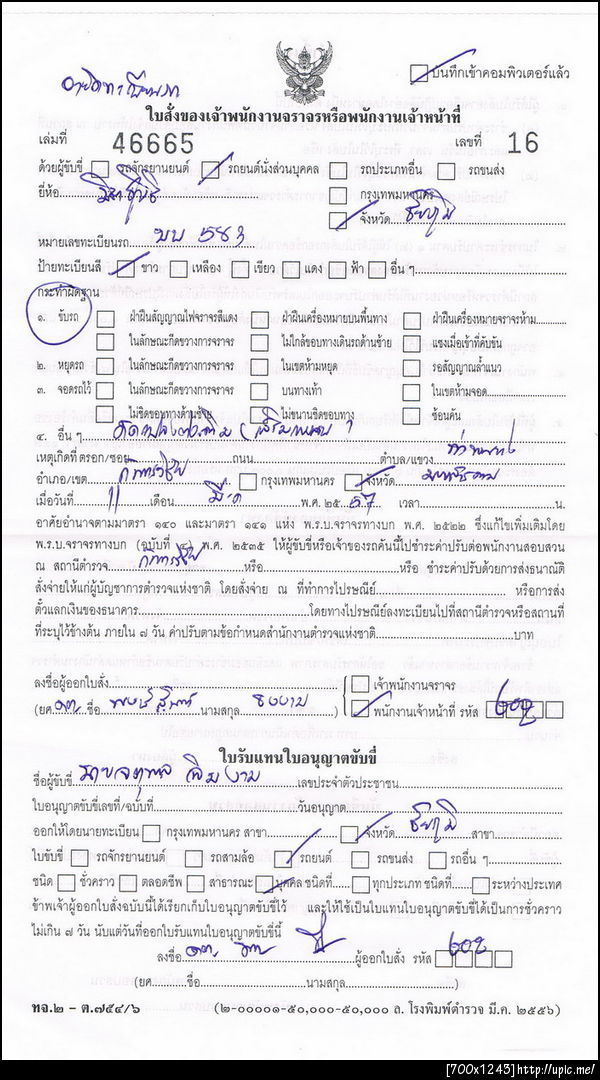 บันทึกเข้าคอมพิวเตอร์แล้ว
ใบสั่งของเจ้าพนักงานจราจรหรือพนักงานเจ้าหน้าที่
เล่มที่ 46665 เลขที่ 16
ด้วยผู้ขับขี่ รถจักรยานยนต์ รถยนต์นั่งส่วนบุคคล รถประเภทอื่น รถขนส่ง
ยี่ห้อ มิตซูบิชิ กรุงเทพมหานคร
จังหวัด ชัยภูมิ
หมายเลขทะเบียนรถ
ป้ายทะเบียนสี ขาว เหลือง เขียว แดง ฟ้า อื่น ๆ
กระทำผิดฐาน
๑. ขับรถ ฝ่าฝืนสัญญาณไฟจราจรสีแดง ฝ่าฝืนเครื่องหมายบนพื้นทาง ฝ่าฝืนเครื่องหมายจราจรห้าม
ในลักษณะกีดขวางการจราจร ไม่ใกล้ขอบทางเดินรถด้านซ้าย แซงเมื่อเข้าที่คับขัน
๒. หยุดรถ ในลักษณะกีดขวางการจราจร ในเขตห้ามหยุด รอสัญญาณล้ำแนว
๓. จอดรถไว้ ในลักษณะกีดขวางการจราจร บนทางเท้า ในเขตห้ามจอด
ไม่ชิดขอบทางด้านซ้าย ไม่ขนานชิดขอบทาง ซ้อนคัน
๔. อื่น ๆ
เหตุเกิดที่ ตรอก/ซอย ถนน ตำบล/แขวง
อำเภอ/เขต กันทรวิชัย กรุงเทพมหานคร จังหวัด มหาสารคาม
เมื่อวันที่ 11 เดือน มี.ค พ.ศ. ๒๕ 57 เวลา น.
อาศัยอำนาจตามมาตรา ๑๔๐ และมาตรา ๑๔๑ แห่ง พ.ร.บ.จราจรทางบก พ.ศ. ๒๕๒๒ ซึ่งแก้ไขเพิ่มเติมโดย
พ.ร.บ.จราจรทางบก (ฉบับที่ ๔) พ.ศ. ๒๕๓๕ ให้ผู้ขับขี่หรือเจ้าของรถคันนี้ไปชำระค่าปรับต่อพนักงานสอบสวน
ณ สถานีตำรวจ กันทรวิชัย หรือ หรือ ชำระค่าปรับด้วยการส่งธนาณัติ
สั่งจ่ายให้แก่ผู้บัญชาการตำรวจแห่งชาติ โดยสั่งจ่าย ณ ที่ทำการไปรษณีย์ หรือการส่ง
ตั๋วแลกเงินของธนาคาร โดยทางไปรษณีย์ลงทะเบียนไปที่สถานีตำรวจหรือสถานที่
ที่ระบุไว้ข้างต้น ภายใน ๗ วัน ค่าปรับตามข้อกำหนดสำนักงานตำรวจแห่งชาติ บาท
ลงชื่อผู้ออกใบสั่ง เจ้าพนักงานจราจร
(ยศ ชื่อ นามสกุล พนักงานเจ้าหน้าที่ รหัส
ใบรับแทนใบอนุญาตขับขี่
ชื่อผู้ขับขี่ เลขประจำตัวประชาชน
ใบอนุญาตขับขี่เลขที่/ฉบับที่ วันอนุญาต
ออกให้โดยนายทะเบียน กรุงเทพมหานคร สาขา จังหวัด ชัยภูมิ สาขา
ใบขับขี่ รถจักรยานยนต์ รถสามล้อ รถยนต์ รถขนส่ง รถอื่น ๆ
ชนิด ชั่วคราว ตลอดชีพ สาธารณะ บุคคล ชนิดที่ ทุกประเภท ชนิดที่ ระหว่างประเทศ
ข้าพเจ้าผู้ออกใบสั่งฉบับนี้ได้เรียกเก็บใบอนุญาตขับขี่ไว้ และให้ใช้เป็นใบแทนใบอนุญาตขับขี่ได้เป็นการชั่วคราว
ไม่เกิน ๗ วัน นับแต่วันที่ออกใบรับแทนใบอนุญาตขับขี่นี้
ลงชื่อ ผู้ออกใบสั่ง รหัส
(ยศ ชื่อ นามสกุล )
ทจ.๒ - ต.๗๕๔/๖ (๒-๐๐๐๐๑-๕๐,๐๐๐-๕๐,๐๐๐ ถ. โรงพิมพ์ตำรวจ มี.ค. ๒๕๕๖)
[700x1243]http://upic.me/